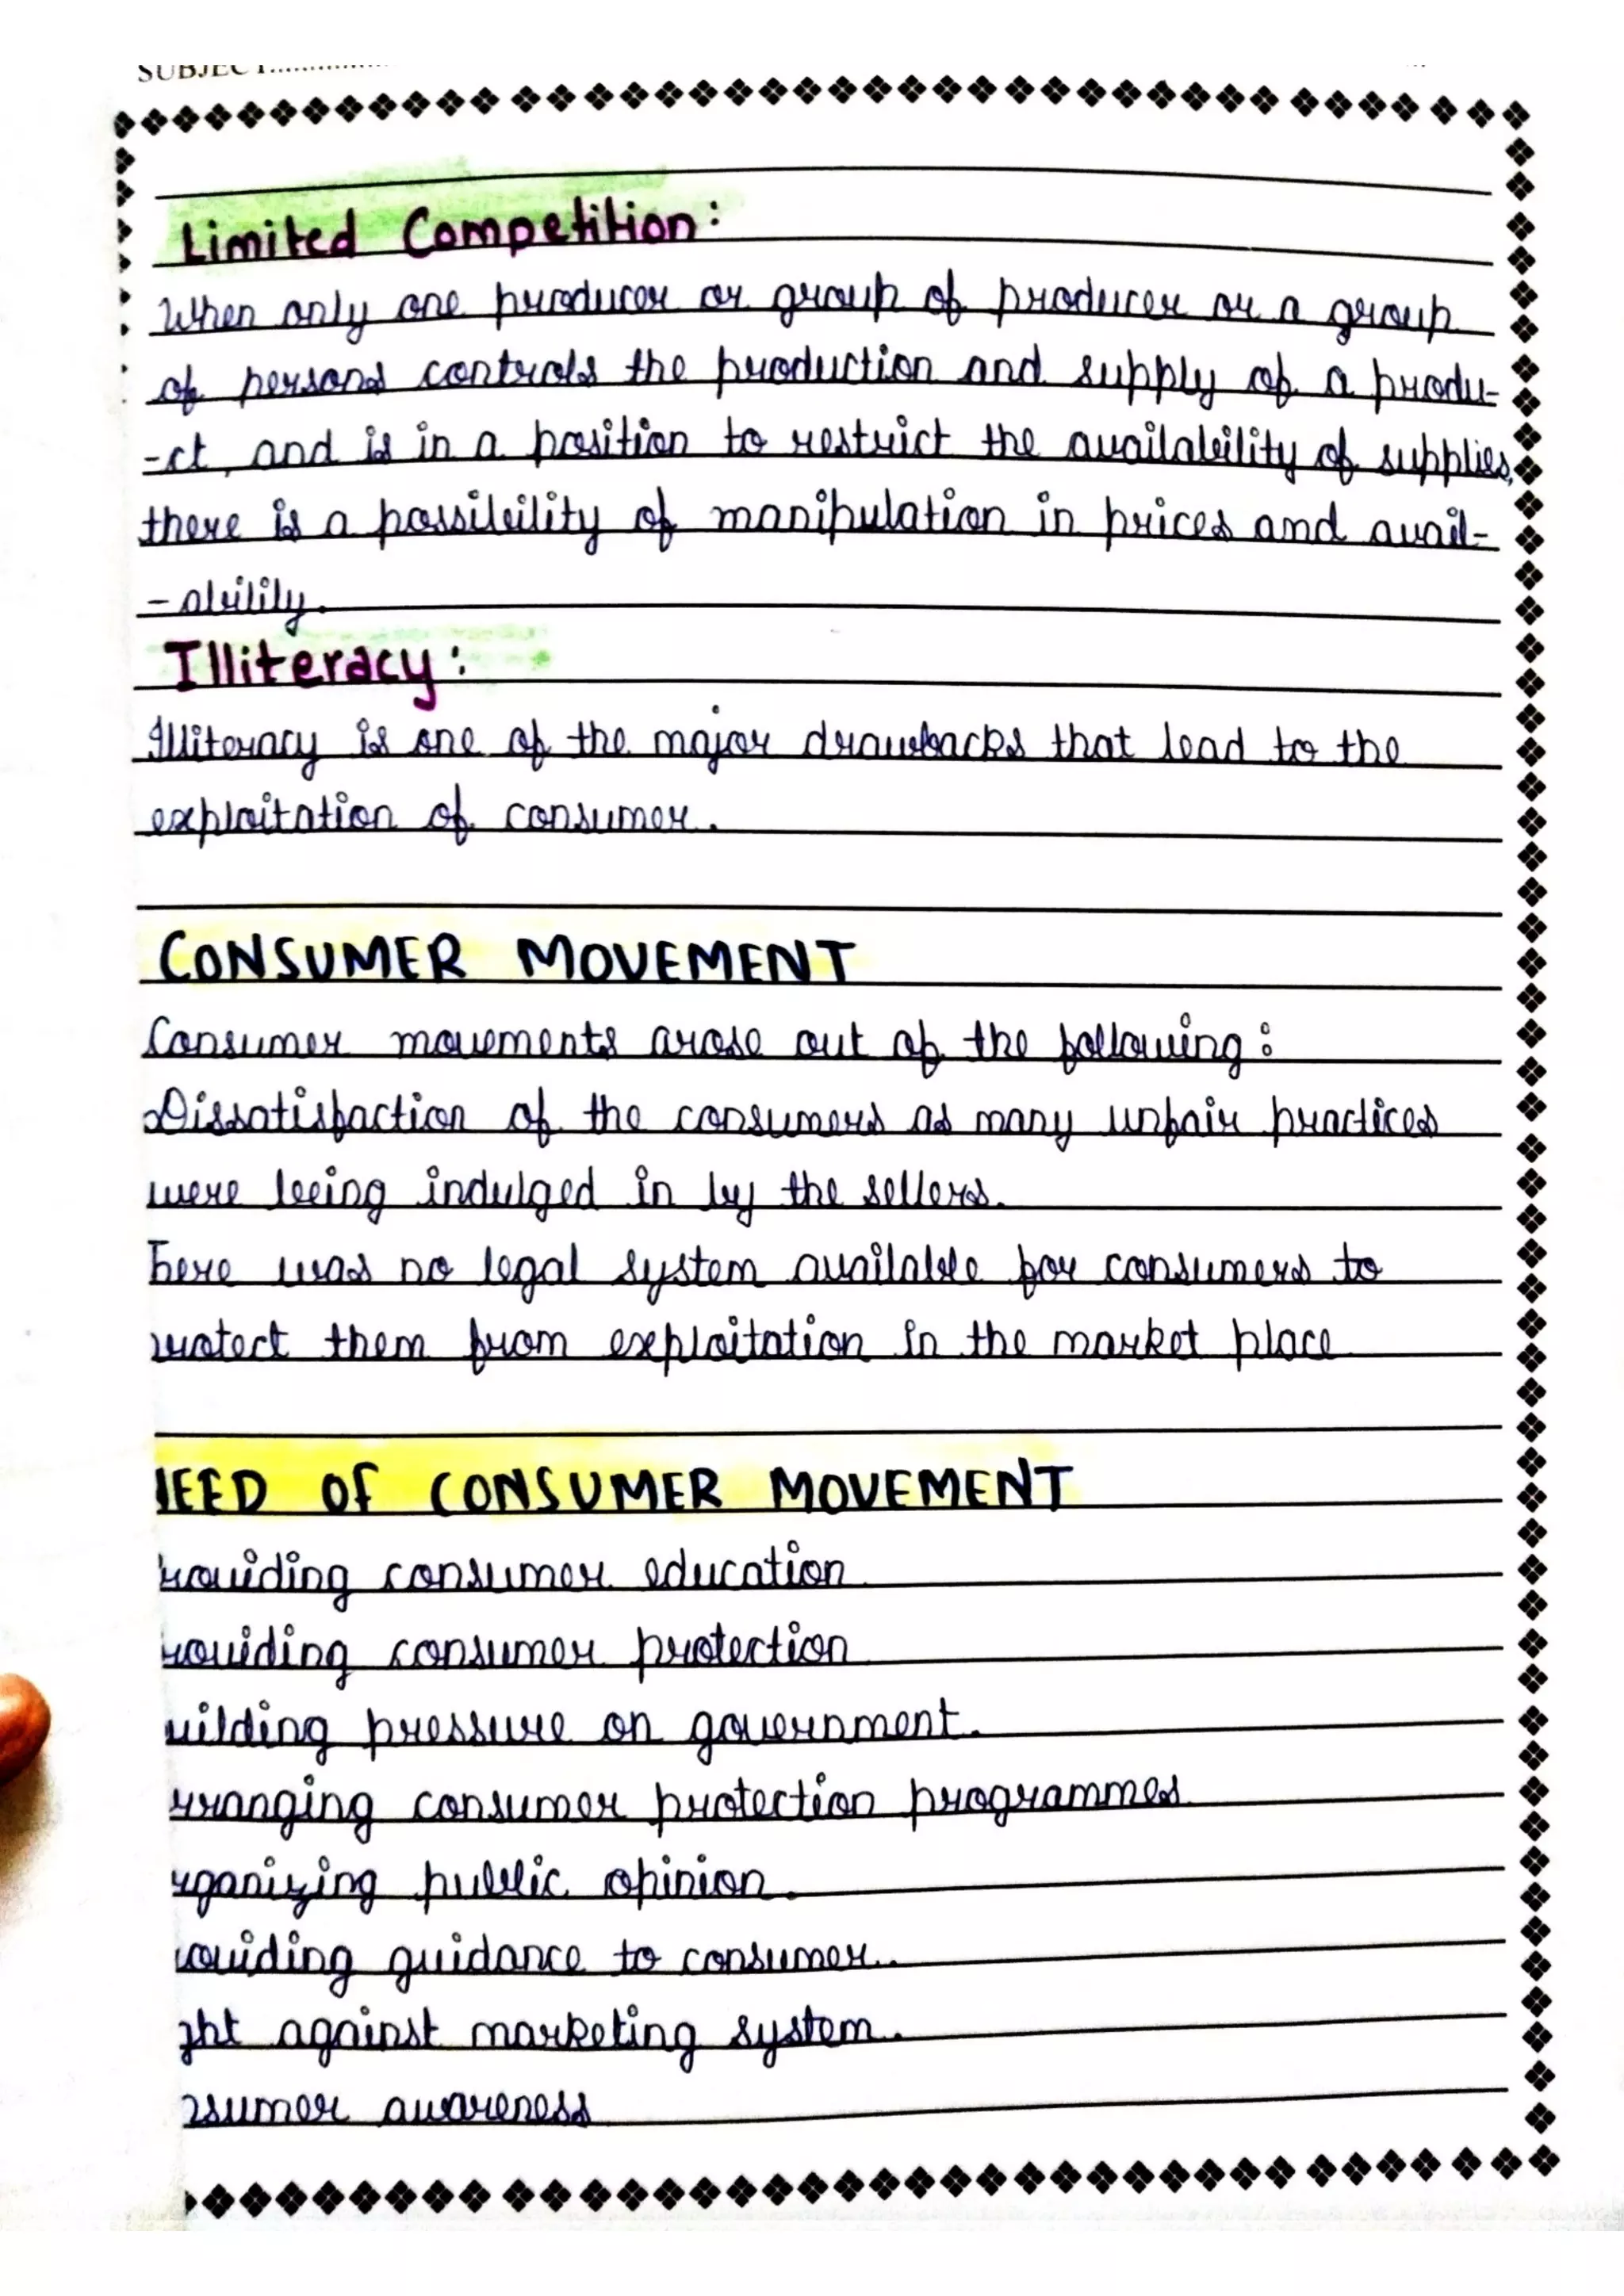 SUBJECT................
Limited Competition:
When only one producer or group of producer or a group
of persons controls the production and supply of a produ-
-ct, and is in a position to restrict the availability of supplies,
there is a possibility of manipulation in prices and avail-
-ability.
Illiteracy:
Illiteracy is one of the major drawbacks that lead to the
exploitation of consumer.
CONSUMER MOVEMENT
Consumer movements arose out of the following:
Dissatisfaction of the consumers as many unfair practices
were being indulged in by the sellers.
There was no legal system available for consumers to
rotect them from exploitation in the market place
NEED OF CONSUMER MOVEMENT
roviding consumer education
roviding consumer protection
uilding pressure on government.
rranging consumer protection programmes
rganizing public opinion.
oviding guidance to consumer.
ght against marketing system.
nsumer awareness